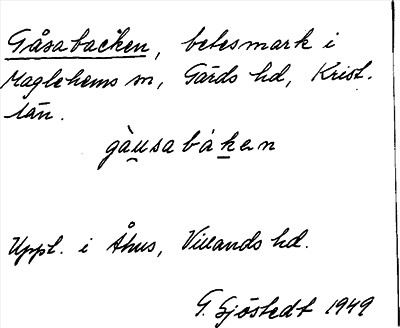 Gåsabacken, betesmark i
Maglehems sn, Gärds hd, Krist.
län.
gàusabáken
Uppt. i Åhus, Villands hd.
G. Sjöstedt 1949